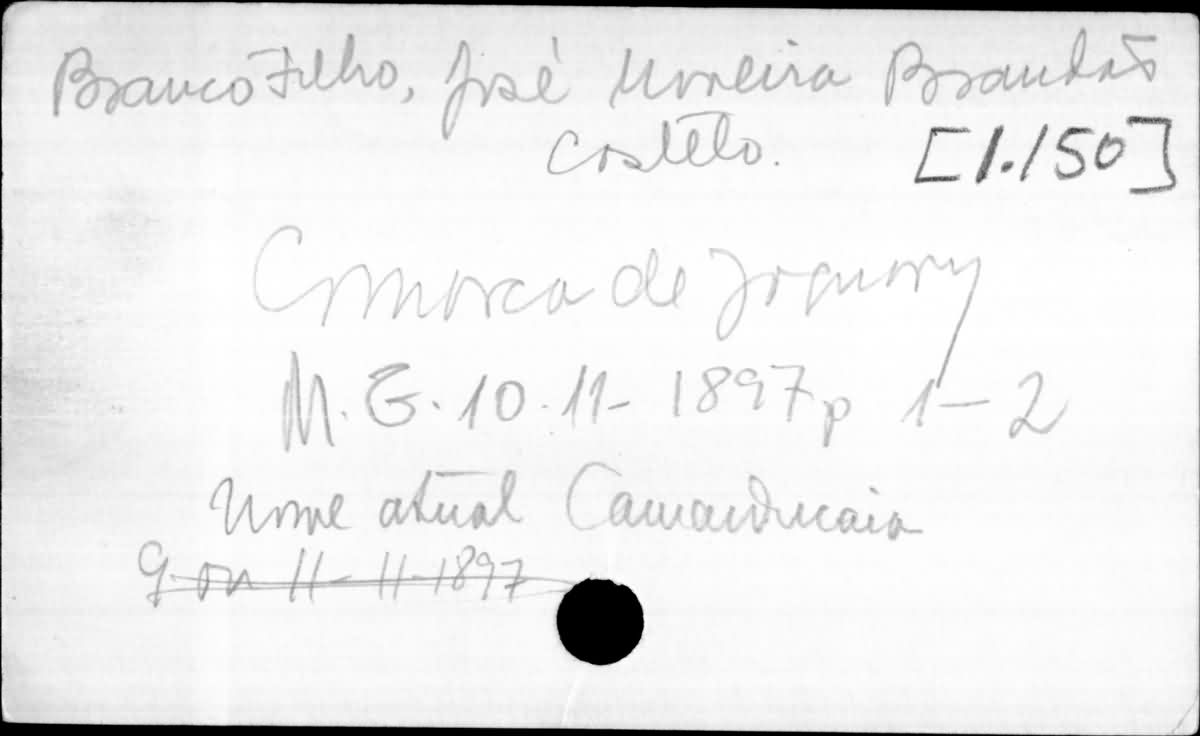 Branco Filho, José Moreira Brandão
Castelo. [1.150]
Comarca de Jaguary
M. G. 10-11-1897 p 1-2
Nome atual Camanducaia
11-11-1897